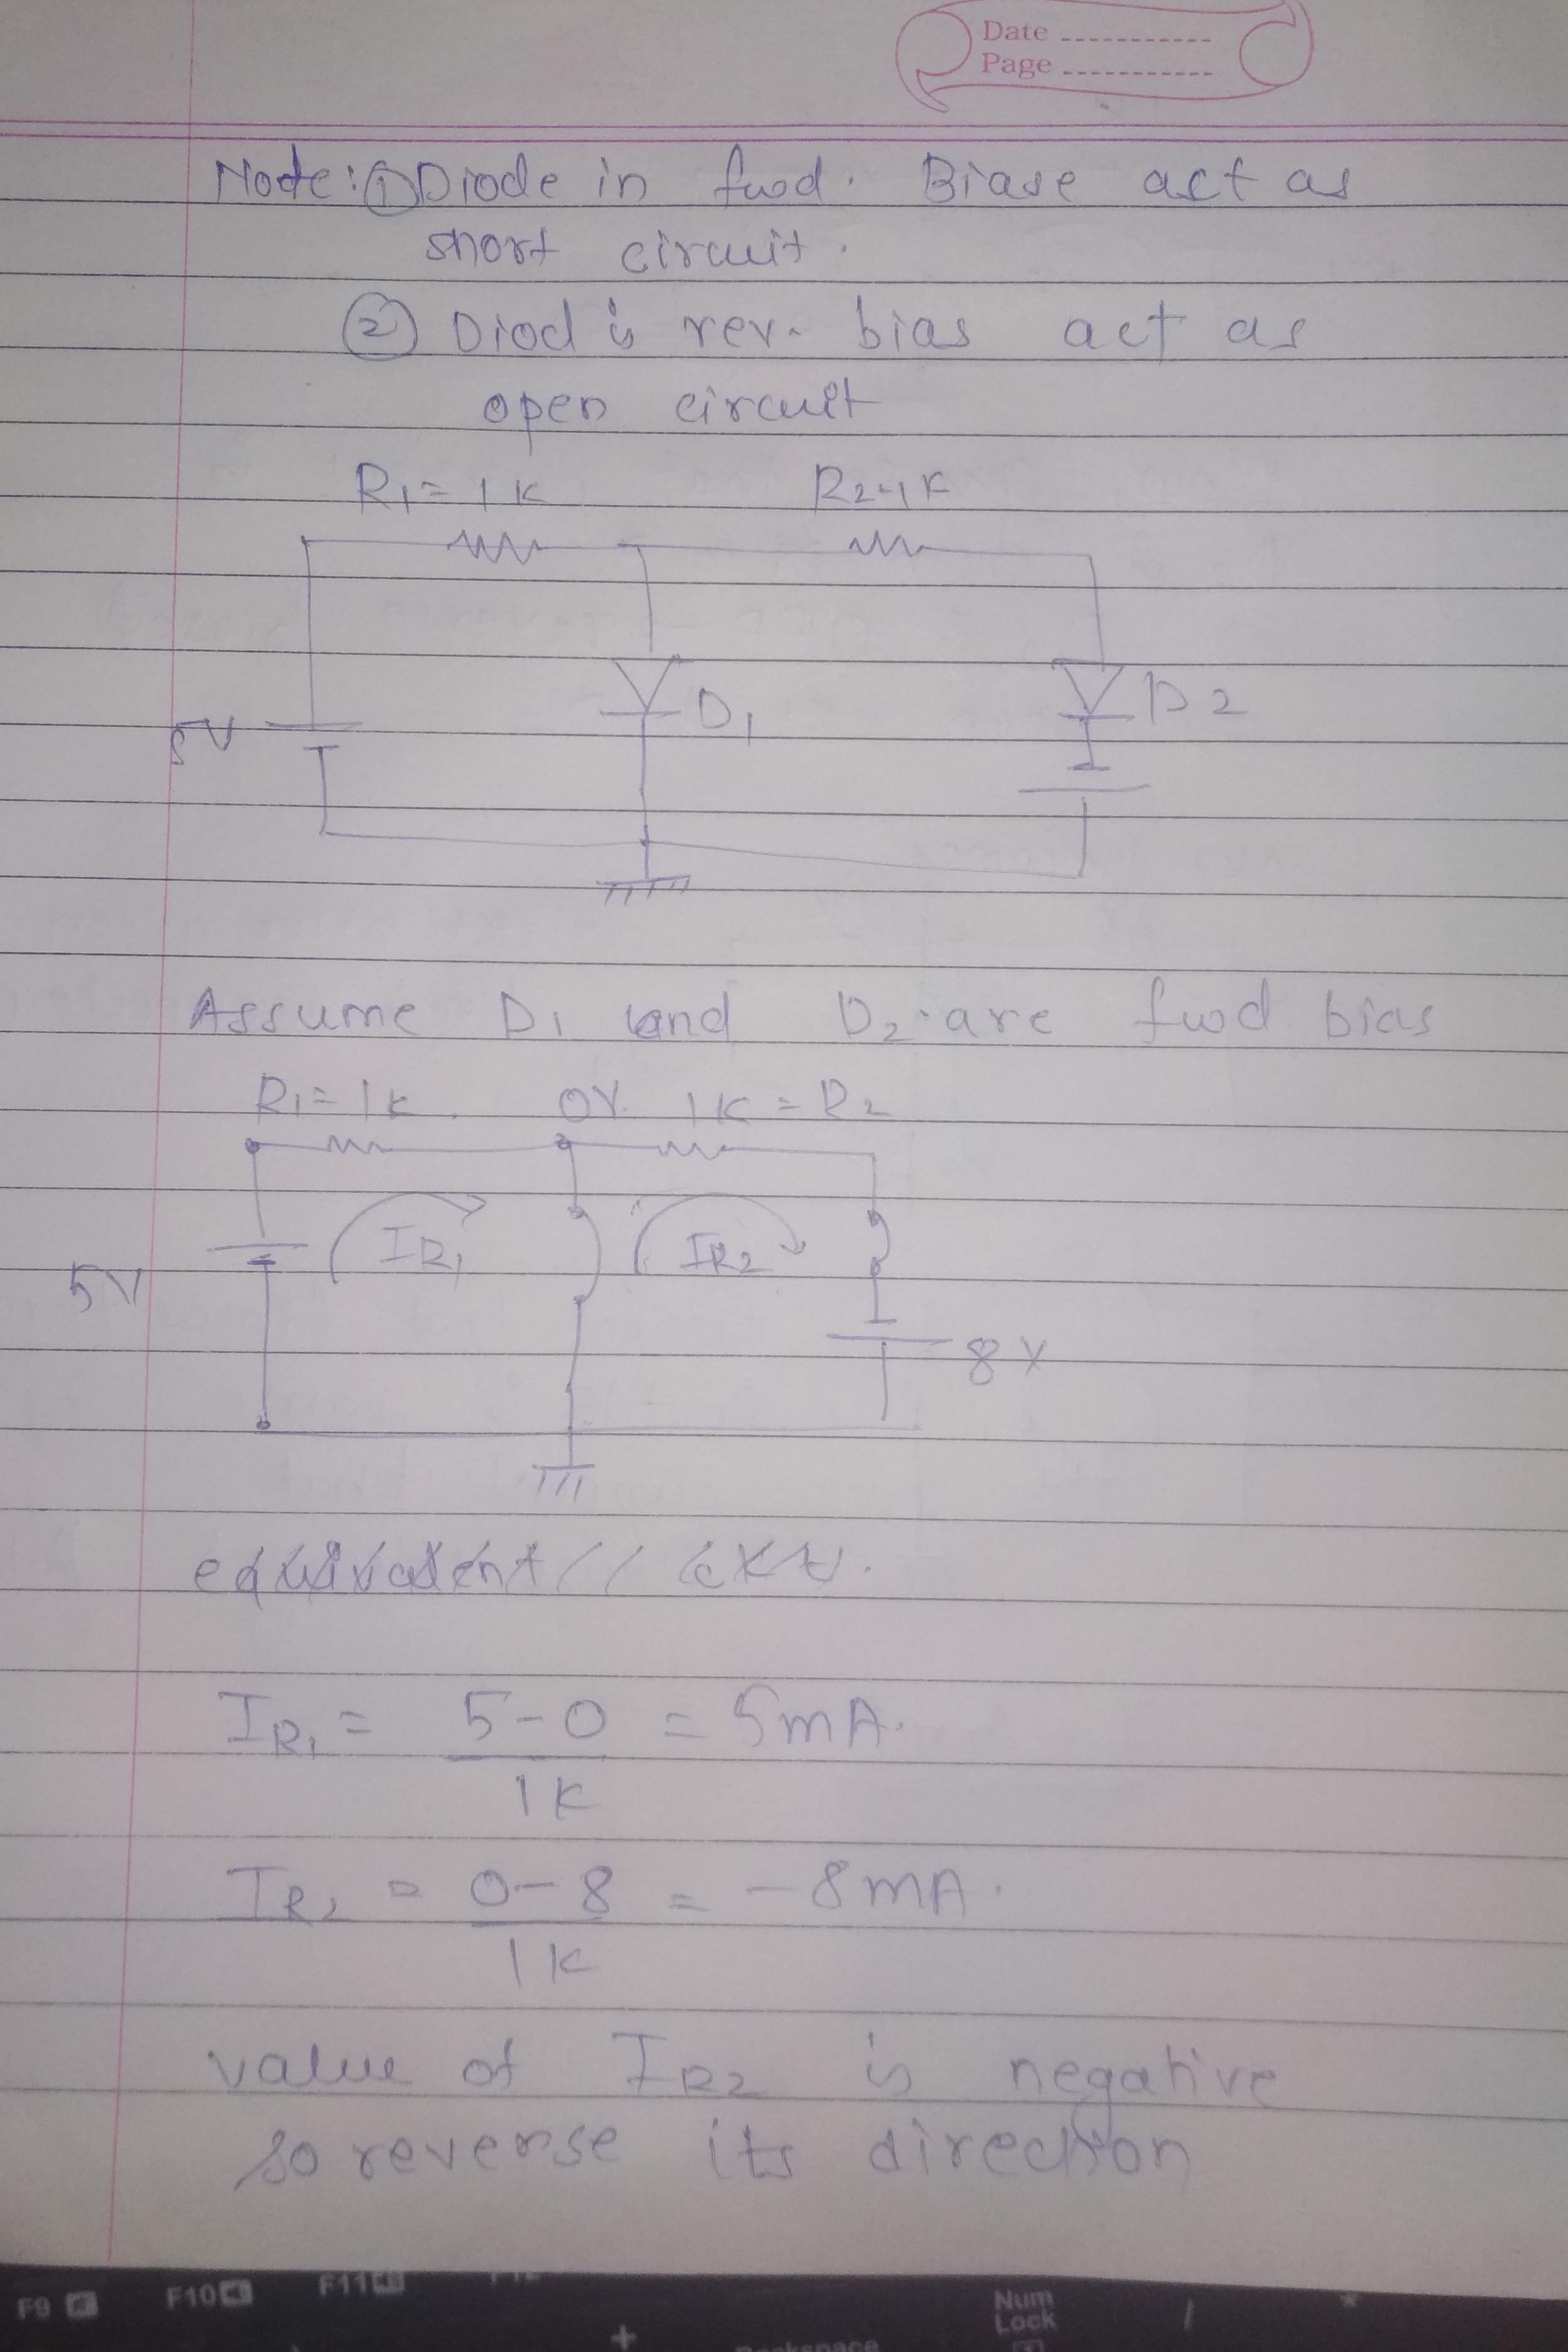 Date
Page
Note: ① Diode in fwd. Biase act as
short circuit.
② Diod is rev. bias act as
open circuit
R1 = 1K R2 = 1K
5V D1 D2
Assume D1 and D2 are fwd bias
R1 = 1K 0V 1K = R2
IR1 IR2
5V
8V
equivalent
IR1 = 5-0 = 5mA.
1K
IR2 = 0-8 = -8mA.
1K
value of IR2 is negative
so reverse its direction
F9 F10 F11 F12
Num
Lock
/ *
+ Backspace